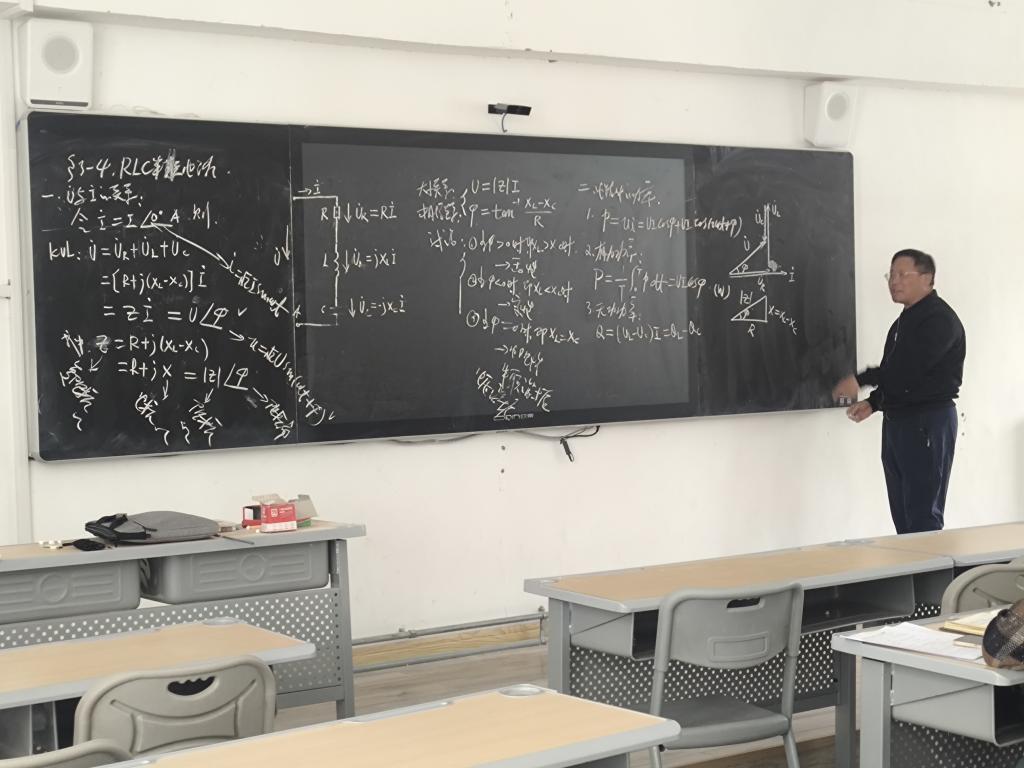 §3-4. RLC串联电路.
一. U̇与İ的关系:
令 i̇ = I∠0° A
KVL: U̇ = U̇R + U̇L + U̇C
= [R+j(XL-XC)] İ
= Z İ = U∠φ
Z = R+j(XL-XC)
= R+jX = |Z|∠φ
i = √2 I sinωt A
u = √2 U sin(ωt+φ) V
İ
U̇
R ↓ U̇R = RİI
L ↓ U̇L = jXL İ
C ↓ U̇C = -jXC İ
大小关系: U = |Z| I
相位关系: φ = tan⁻¹ (XL-XC)/R
讨论: ①当φ>0时 即XL>XC时
②当φ<0时 即XL<XC时
③当φ=0时 即XL=XC
二. 电路中的功率:
1. p = ui = UI cosφ + UI cos(2ωt+φ)
2. 有功功率:
P = 1/T ∫ᵀ₀ p dt = UI cosφ (W)
3. 无功功率:
Q = (UL-UC)I = QL-QC
U̇L
U̇C
U̇
U̇R
İ
φ
|Z|
φ
R
X=XL-XC